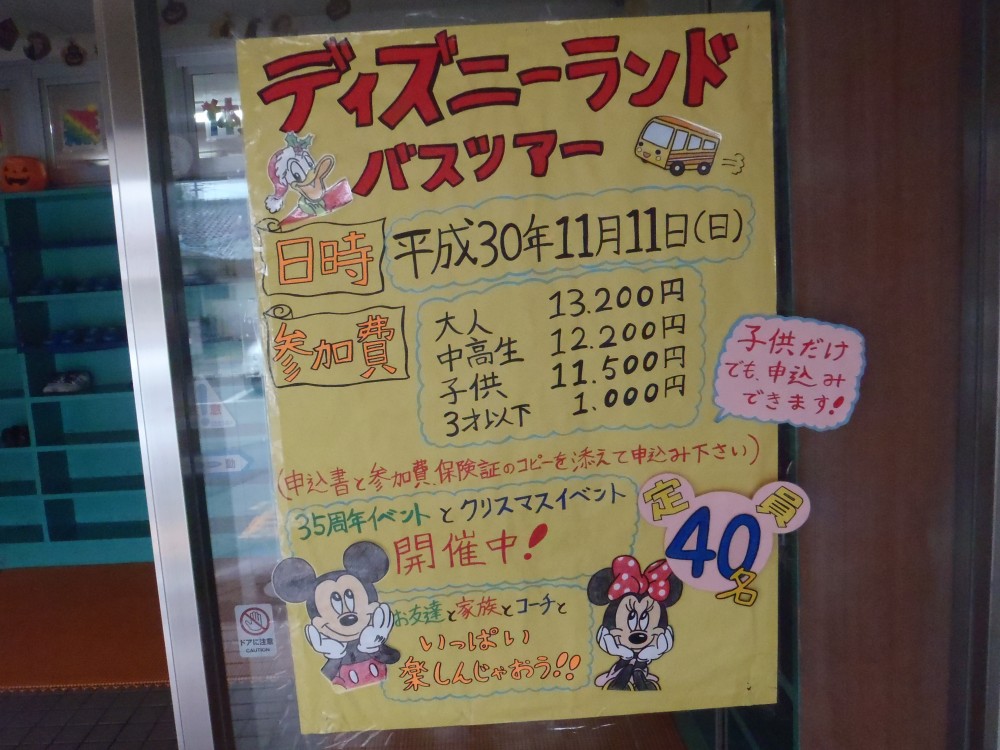 ディズニーランド
バスツアー
日時
平成30年11月11日(日)
参加費
大人 13.200円
中高生 12.200円
子供 11.500円
3才以下 1.000円
子供だけ
でも、申込み
できます!
(申込書と参加費、保険証のコピーを添えて申込み下さい)
35周年イベントとクリスマスイベント
開催中!
定員
40
名
お友達と家族とコーチと
いっぱい
楽しんじゃおう!!
ドアに注意
CAUTION